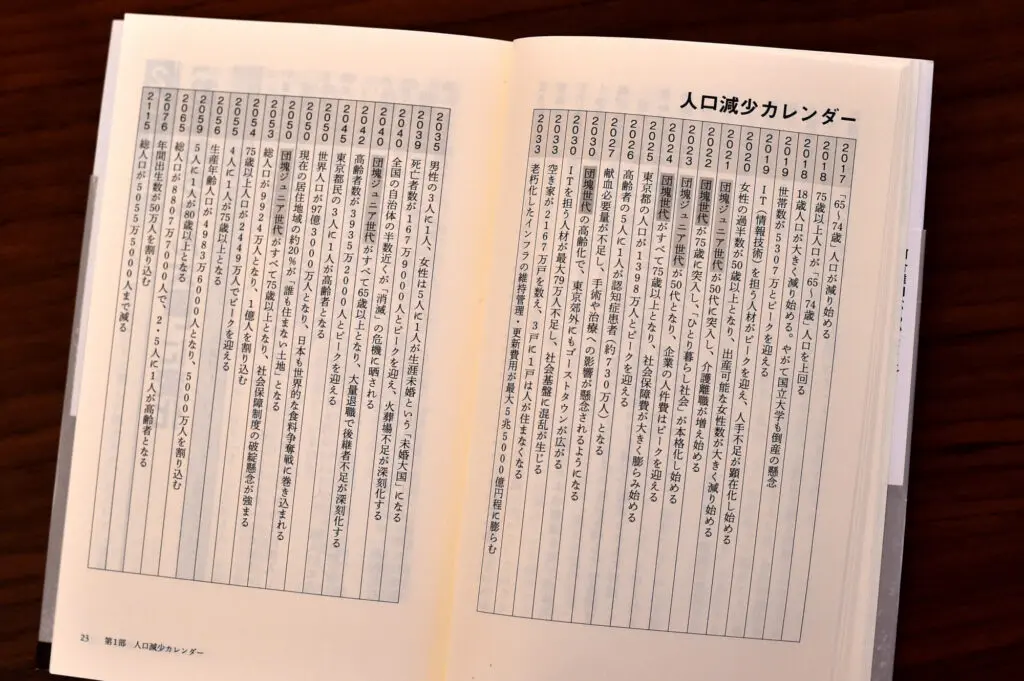 人口減少カレンダー
2017 「65〜74歳」人口が減り始める
2018 75歳以上人口が「65〜74歳」人口を上回る
2018 18歳人口が大きく減り始める。やがて国立大学も倒産の懸念
2019 世帯数が5307万とピークを迎える
2019 IT(情報技術)を担う人材がピークを迎え、人手不足が顕在化し始める
2020 女性の過半数が50歳以上となり、出産可能な女性数が大きく減り始める
2021 団塊ジュニア世代が50代に突入し、介護離職が増え始める
2022 団塊世代が75歳に突入し、「ひとり暮らし社会」が本格化し始める
2023 団塊ジュニア世代が50代となり、企業の人件費はピークを迎える
2024 団塊世代がすべて75歳以上となり、社会保障費が大きく膨らみ始める
2025 東京都の人口が1398万人とピークを迎える
2026 高齢者の5人に1人が認知症患者(約730万人)となる
2027 献血必要量が不足し、手術や治療への影響が懸念されるようになる
2030 団塊世代の高齢化で、東京郊外にもゴーストタウンが広がる
2030 ITを担う人材が最大79万人不足し、社会基盤に混乱が生じる
2033 空き家が2167万戸を数え、3戸に1戸は人が住まなくなる
2033 老朽化したインフラの維持管理・更新費用が最大5兆5000億円程に膨らむ
2035 男性の3人に1人、女性は5人に1人が生涯未婚という「未婚大国」になる
2039 死亡者数が167万9000人とピークを迎え、火葬場不足が深刻化する
2040 全国の自治体の半数近くが「消滅」の危機に晒される
2040 団塊ジュニア世代がすべて65歳以上となり、大量退職で後継者不足が深刻化する
2042 高齢者数が3935万2000人とピークを迎える
2045 東京都民の3人に1人が高齢者となる
2050 世界人口が97億3000万人となり、日本も世界的な食料争奪戦に巻き込まれる
2050 現在の居住地域の約20%が「誰も住まない土地」となる
2050 団塊ジュニア世代がすべて75歳以上となり、社会保障制度の破綻懸念が強まる
2053 総人口が9924万人となり、1億人を割り込む
2054 75歳以上人口が2449万人でピークを迎える
2055 4人に1人が75歳以上となる
2056 生産年齢人口が4983万6000人となり、5000万人を割り込む
2059 5人に1人が80歳以上となる
2065 総人口が8807万7000人で、2・5人に1人が高齢者となる
2076 年間出生数が50万人を割り込む
2115 総人口が5055万5000人まで減る
23 第1部 人口減少カレンダー